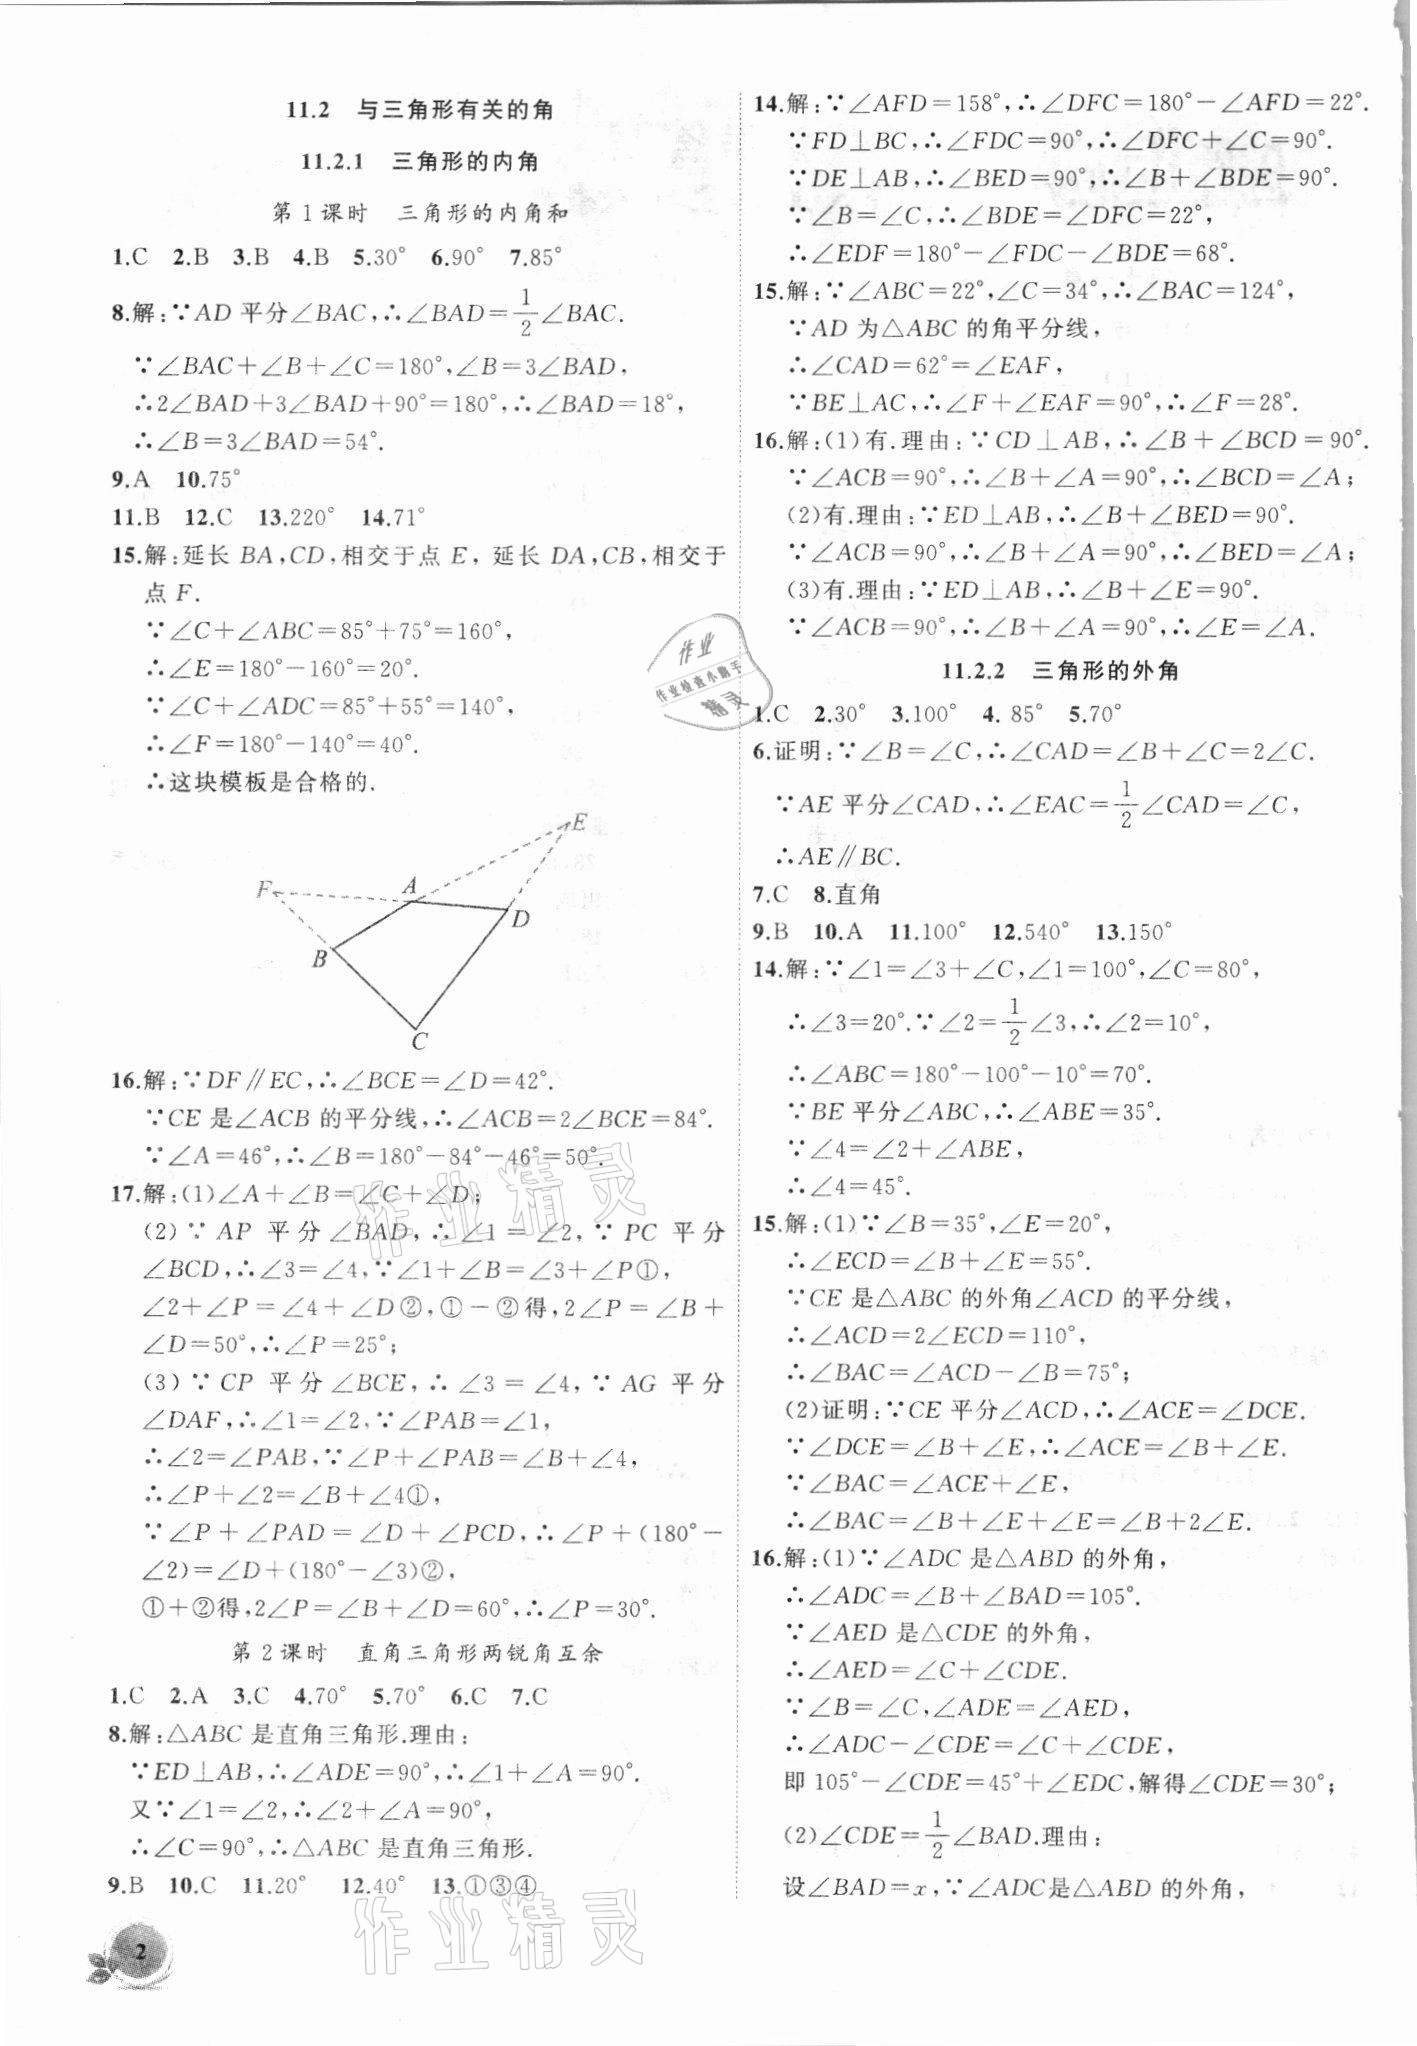 11.2 与三角形有关的角
11.2.1 三角形的内角
第1课时 三角形的内角和
1.C 2.B 3.B 4.B 5.30° 6.90° 7.85°
8.解:∵AD 平分∠BAC,∴∠BAD=1/2∠BAC.
∵∠BAC+∠B+∠C=180°,∠B=3∠BAD,
∴2∠BAD+3∠BAD+90°=180°,∴∠BAD=18°,
∴∠B=3∠BAD=54°.
9.A 10.75°
11.B 12.C 13.220° 14.71°
15.解:延长 BA,CD,相交于点 E, 延长 DA,CB,相交于
点 F.
∵∠C+∠ABC=85°+75°=160°,
∴∠E=180°-160°=20°.
∵∠C+∠ADC=85°+55°=140°,
∴∠F=180°-140°=40°.
∴这块模板是合格的.
E
F
A
D
B
C
16.解:∵DF∥EC,∴∠BCE=∠D=42°.
∵CE 是∠ACB 的平分线,∴∠ACB=2∠BCE=84°.
∵∠A=46°,∴∠B=180°-84°-46°=50°.
17.解:(1)∠A+∠B=∠C+∠D;
(2)∵ AP 平分∠BAD,∴∠1=∠2,∵ PC 平分
∠BCD,∴∠3=∠4,∵∠1+∠B=∠3+∠P①,
∠2+∠P=∠4+∠D②,①-②得,2∠P=∠B+
∠D=50°,∴∠P=25°;
(3)∵ CP 平分∠BCE,∴∠3=∠4,∵ AG 平分
∠DAF,∴∠1=∠2,∵∠PAB=∠1,
∴∠2=∠PAB,∵∠P+∠PAB=∠B+∠4,
∴∠P+∠2=∠B+∠4①,
∵∠P+∠PAD=∠D+∠PCD,∴∠P+(180°-
∠2)=∠D+(180°-∠3)②,
①+②得,2∠P=∠B+∠D=60°,∴∠P=30°.
第2课时 直角三角形两锐角互余
1.C 2.A 3.C 4.70° 5.70° 6.C 7.C
8.解:△ABC 是直角三角形.理由:
∵ED⊥AB,∴∠ADE=90°,∴∠1+∠A=90°.
又∵∠1=∠2,∴∠2+∠A=90°,
∴∠C=90°,∴△ABC 是直角三角形.
9.B 10.C 11.20° 12.40° 13.①③④
2
14.解:∵∠AFD=158°,∴∠DFC=180°-∠AFD=22°.
∵FD⊥BC,∴∠FDC=90°,∴∠DFC+∠C=90°.
∵DE⊥AB,∴∠BED=90°,∴∠B+∠BDE=90°.
∵∠B=∠C,∴∠BDE=∠DFC=22°,
∴∠EDF=180°-∠FDC-∠BDE=68°.
15.解:∵∠ABC=22°,∠C=34°,∴∠BAC=124°,
∵AD 为△ABC 的角平分线,
∴∠CAD=62°=∠EAF,
∵BE⊥AC,∴∠F+∠EAF=90°,∴∠F=28°.
16.解:(1)有.理由:∵CD⊥AB,∴∠B+∠BCD=90°.
∵∠ACB=90°,∴∠B+∠A=90°,∴∠BCD=∠A;
(2)有.理由:∵ED⊥AB,∴∠B+∠BED=90°.
∵∠ACB=90°,∴∠B+∠A=90°,∴∠BED=∠A;
(3)有.理由:∵ED⊥AB,∴∠B+∠E=90°.
∵∠ACB=90°,∴∠B+∠A=90°,∴∠E=∠A.
11.2.2 三角形的外角
1.C 2.30° 3.100° 4.85° 5.70°
6.证明:∵∠B=∠C,∴∠CAD=∠B+∠C=2∠C.
∵AE 平分∠CAD,∴∠EAC=1/2∠CAD=∠C,
∴AE∥BC.
7.C 8.直角
9.B 10.A 11.100° 12.540° 13.150°
14.解:∵∠1=∠3+∠C,∠1=100°,∠C=80°,
∴∠3=20°.∵∠2=1/2∠3,∴∠2=10°,
∴∠ABC=180°-100°-10°=70°.
∵BE 平分∠ABC,∴∠ABE=35°.
∵∠4=∠2+∠ABE,
∴∠4=45°.
15.解:(1)∵∠B=35°,∠E=20°,
∴∠ECD=∠B+∠E=55°.
∵CE 是△ABC 的外角∠ACD 的平分线,
∴∠ACD=2∠ECD=110°,
∴∠BAC=∠ACD-∠B=75°;
(2)证明:∵CE 平分∠ACD,∴∠ACE=∠DCE.
∵∠DCE=∠B+∠E,∴∠ACE=∠B+∠E.
∵∠BAC=∠ACE+∠E,
∴∠BAC=∠B+∠E+∠E=∠B+2∠E.
16.解:(1)∵∠ADC 是△ABD 的外角,
∴∠ADC=∠B+∠BAD=105°.
∵∠AED 是△CDE 的外角,
∴∠AED=∠C+∠CDE.
∵∠B=∠C,∠ADE=∠AED,
∴∠ADC-∠CDE=∠C+∠CDE,
即 105°-∠CDE=45°+∠EDC,解得∠CDE=30°;
(2)∠CDE=1/2∠BAD.理由:
设∠BAD=x,∵∠ADC是△ABD 的外角,
作业
作业检查小助手
精灵
作业精灵
作业精灵